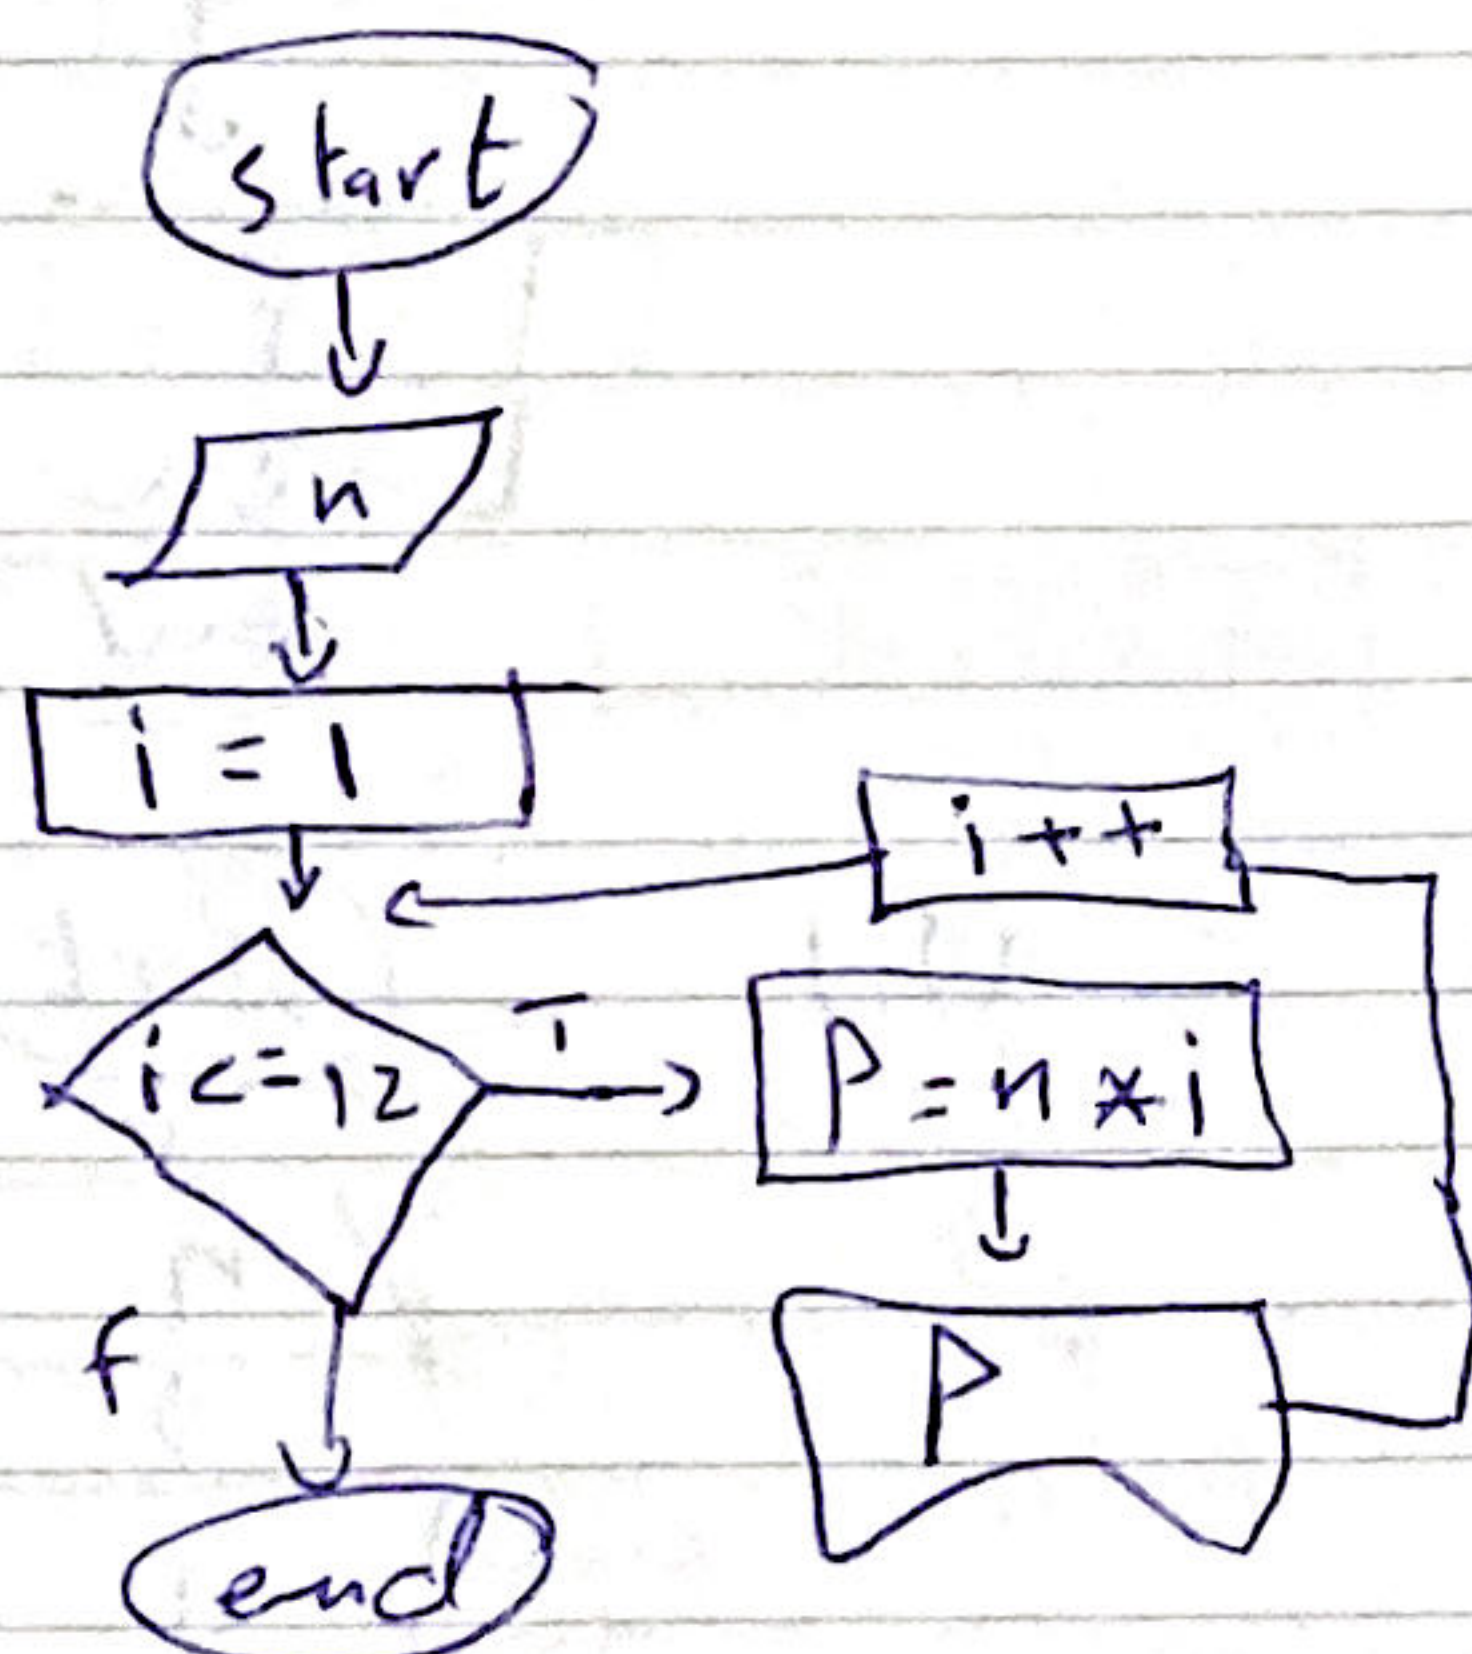 start
n
i = 1
i++
i<=12
T
P = n * i
f
P
end